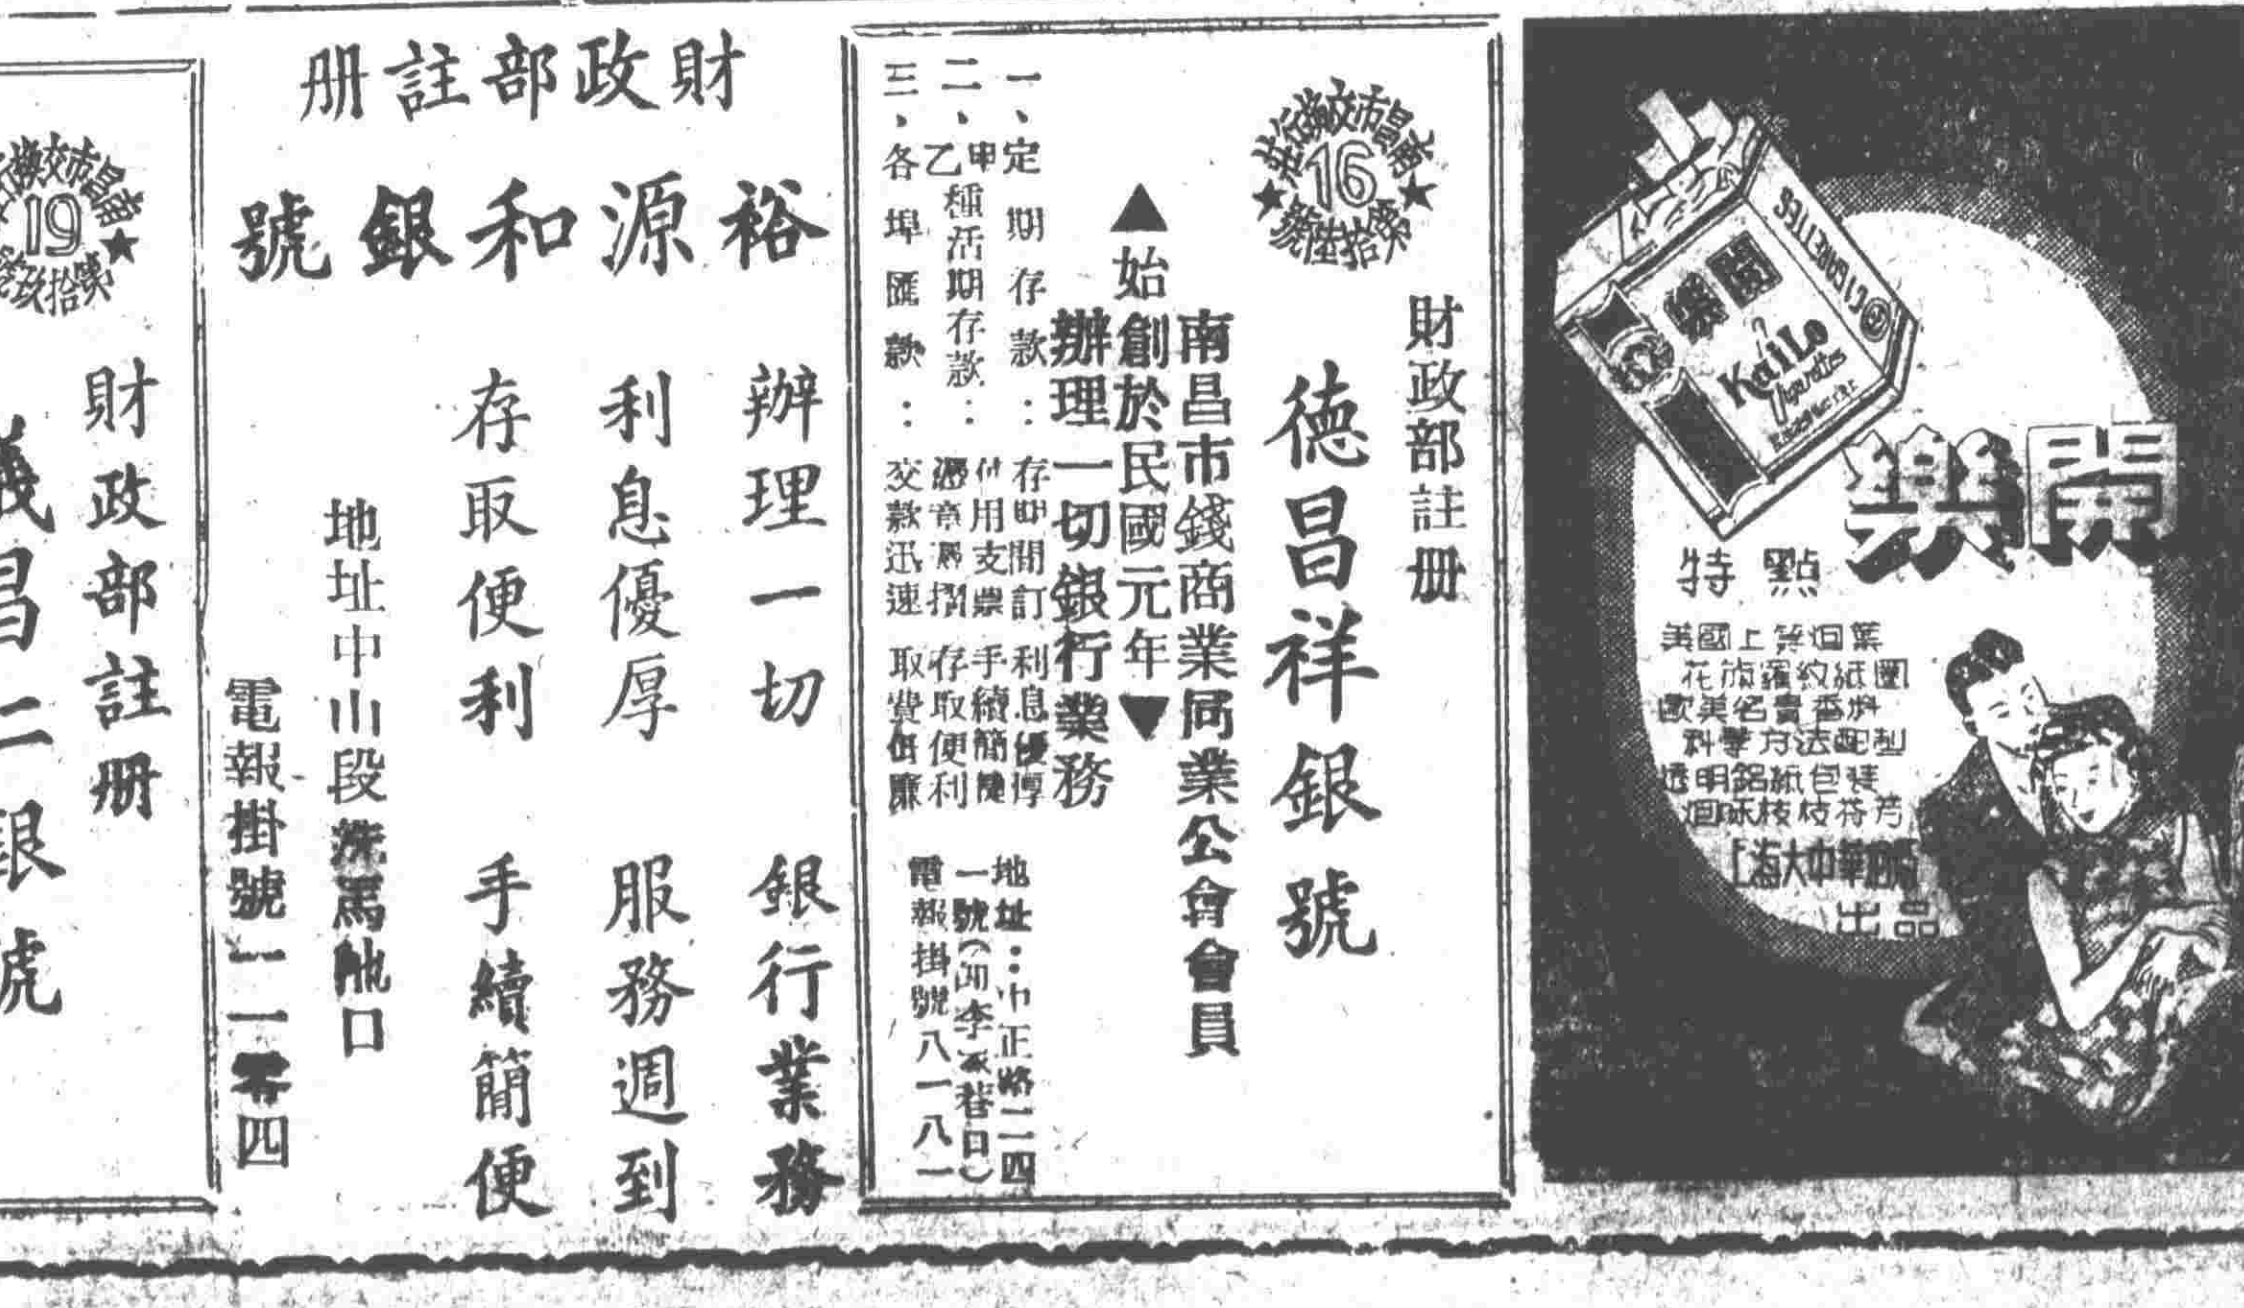 開樂
CIGARETTES
開樂
KaiLo
Cigarettes
特點
美國上等烟葉
花旗羅紋紙圈
歐美名貴香料
科學方法配制
透明鋁紙包裝
烟味枝枝芬芳
出品
南昌市交換行莊
16
第拾陸號
財政部註册
德昌祥銀號
南昌市錢商業同業公會會員
▲始創於民國元年▼
辦理一切銀行業務
一、定期存款：存期間訂 利息優厚
二、甲乙種活期存款：
付用支票 手續簡捷
憑章憑摺 存取便利
三、各埠匯款：交款迅速 取費低廉
地址：中正路二四
一號
電報掛號八一八一
財政部註册
裕源和銀號
辦理一切 銀行業務
利息優厚 服務週到
存取便利 手續簡便
地址中山段洗馬池口
電報掛號一一零四
南昌市交換行
19
第拾玖號
財政部註册
義昌仁銀號